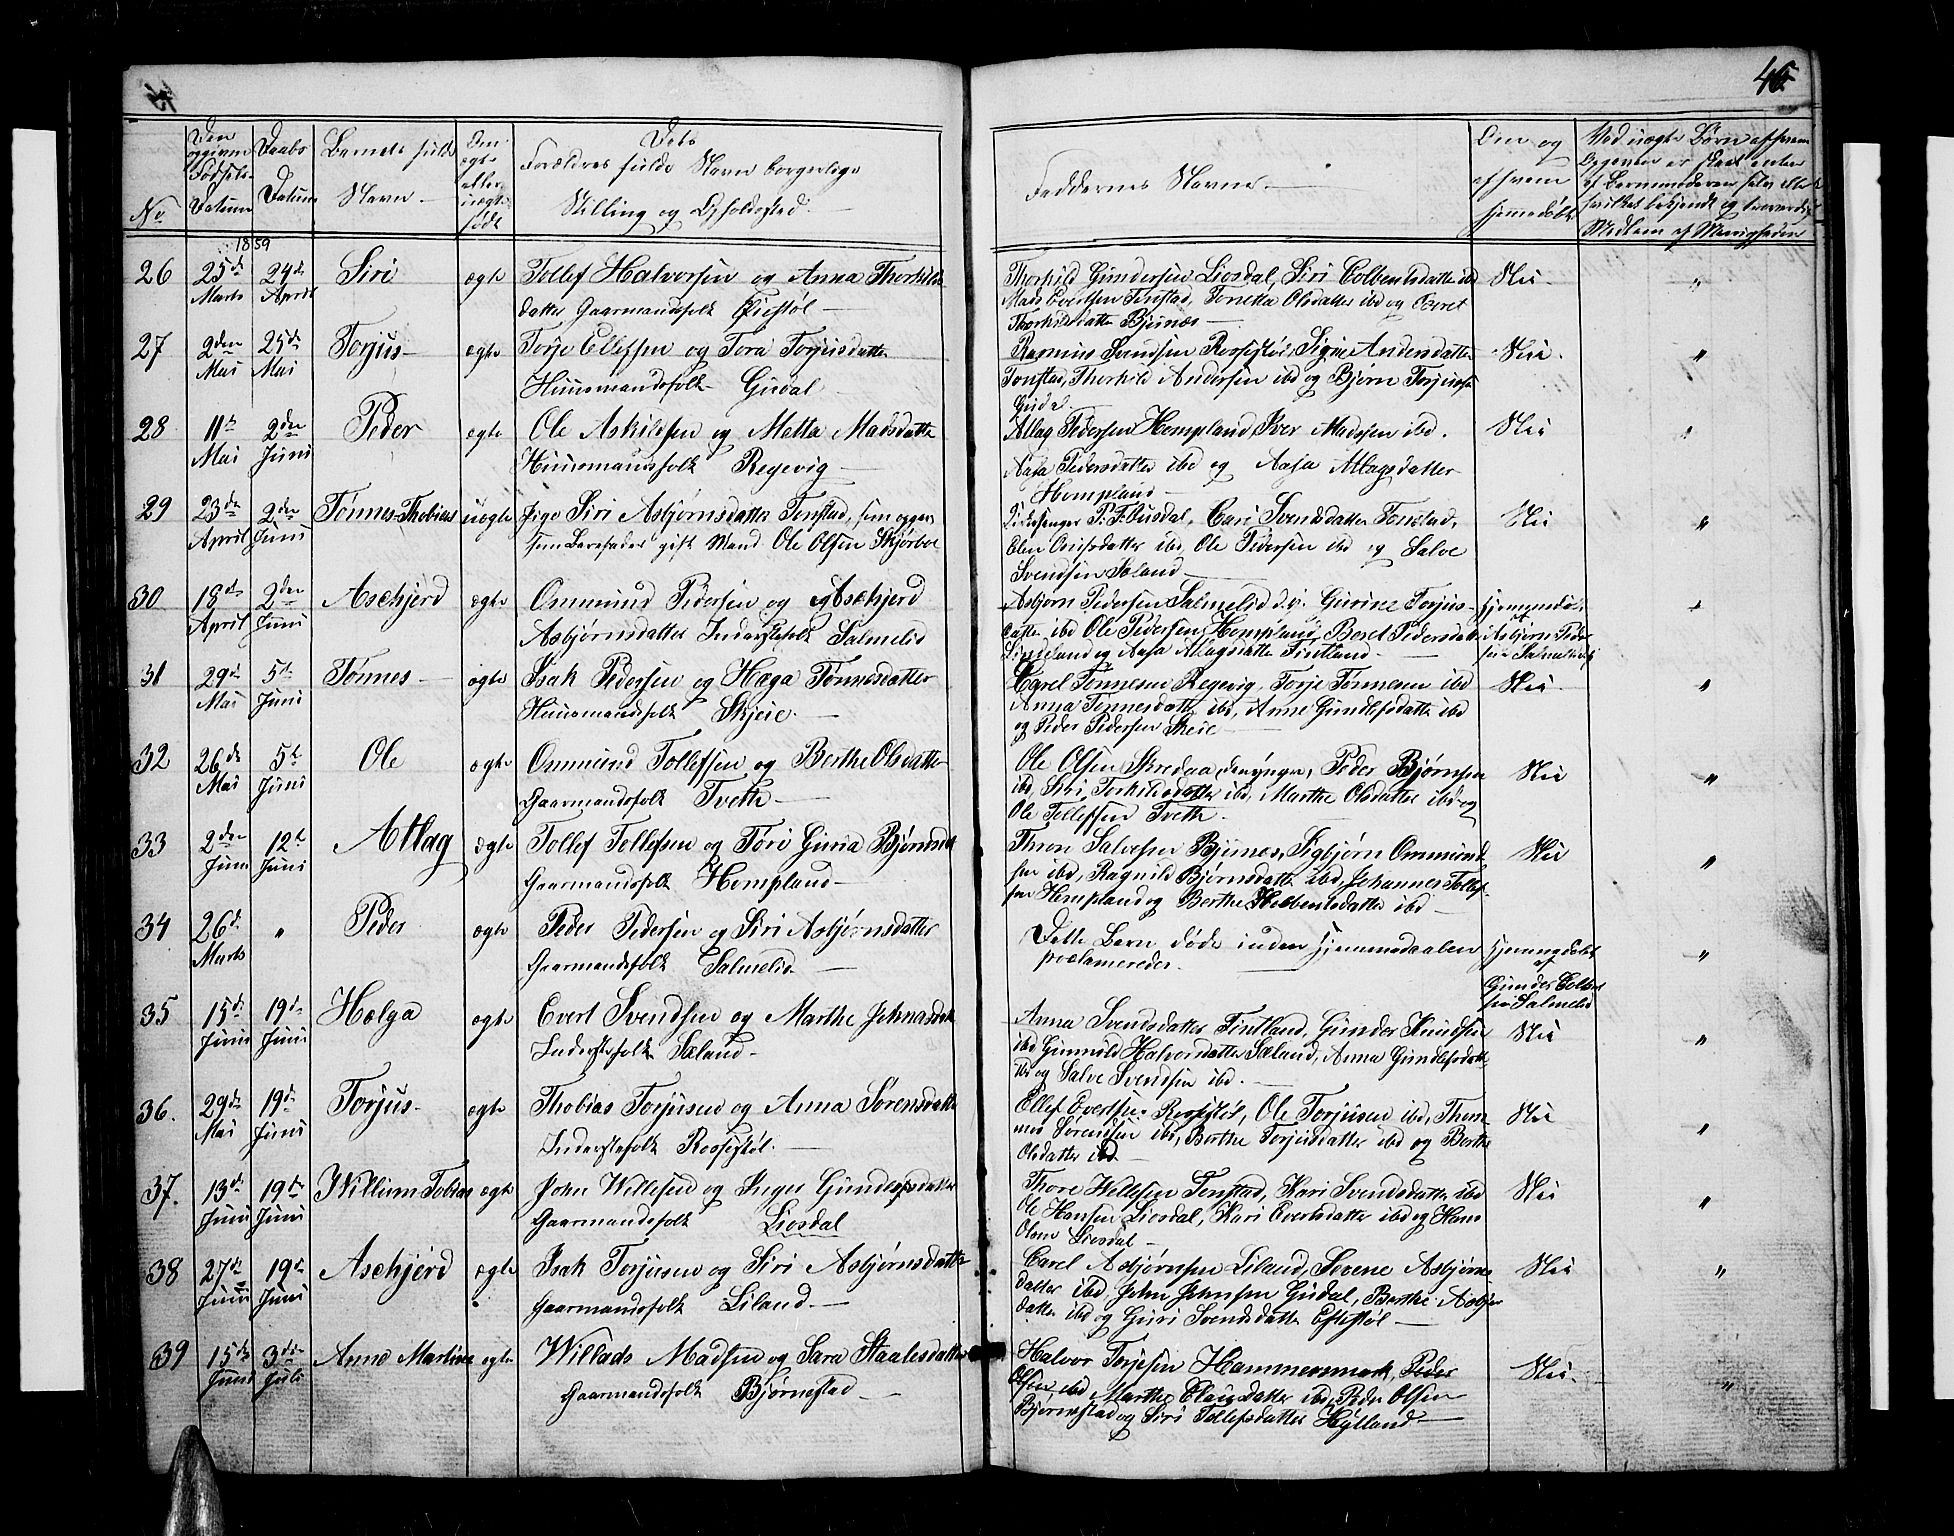 46
No
Den opgivne Fødsels-Datum
Daabs Datum
Barnets fulde Navn.
Om ægte eller uægte født
Dets Forældres fulde Navn borgerlige Stilling og Opholdssted.
Faddernes Navne.
Om og af hvem hjemmedøbt
Medlem af Menigheden
1859
26 25de Marts 24de April Siri ægte Tollef Halvorsen og Anna Thorkilds-
datter Gaarmandsfolk
Thorkild Gundersen Liosdal, Siri
Mads Evertsen Tonstad, Tonetta Olsdatter ibd og Beret
Thorkildsdatter Bjunes
Nei
"
27 2den Mai 25de Mai Torjus ægte Torje Ellefsen og Tora Torjusdatter
Huusmandsfolk Gudal
Rasmus Svendsen Rossestøl, Signe Andersdatter
Tonstad, Thorkild Andersen ibd og Bjørn Torjussen
Gudal
Nei.
"
28 11te Mai 2den Juni Peder ægte Ole Askildsen og Metta Madsdatter
Huusmandsfolk Regevig
Atlag Pedersen Hompland, Iver Madssen ibd.
Aasa Pedersdatter ibd og Aasa Atlagsdatter
Hompland
Nei
"
29 23de April 2den Juni Tønnes Thobias uægte Pige Siri Asbjørnsdatter Tonstad, som opgav
som Barnefader gift Mand Ole Olsen Skjerbe
P. F. Ousdal, Cari Svendsdatter Tonstad,
ibd, Ole Pedersen ibd og Salve
Svendsen Sæland
Nei
"
30 18de April 2den Juni Asekjerd ægte Ommund Pedersen og Asekjerd
Asbjørnsdatter Inderstefolk Salmelid
Asbjørn Pedersen Salmelid d.y. Gurine Torjus-
datter ibd Ole Pedersen Hompland, Beret Pedersdatter
og Aasa Atlagsdatter Fintland
Asbjørn Peder-
sen Salmelid
31 29de Mai 5te Juni Tønnes ægte Isak Pedersen og Hæga Tønnesdatter
Huusmandsfolk Skjeie.
Carel Tønnesen Regevig, Torje Tønnesen ibd
Anna Tønnesdatter ibd, Anne Gundersdatter ibd
og Peder Pedersen Skeie
Nei.
"
32 26de Mai 5te Juni Ole ægte Ommund Tollefsen og Berthe Olsdatter
Gaarmandsfolk Tveth
Ole Olsen Skredaa den yngre, Peder Bjørnsen
ibd, Siri Torkildsdatter ibd, Marthe Olsdatter ibd og
Ole Tollefsen Tveth.
Nei
"
33 2den Juni 12te Juni Atlag ægte Tollef Tollefsen og Tøri Guria
Gaarmandsfolk Hompland
Thore Salvesen Bjunes, Sigbjørn Ommund-
sen ibd, Ragnild Bjørnsdatter ibd, Johannes Tollef-
sen Hompland og Berthe ibd
Nei
"
34 26de Marts " Peder ægte Peder Pedersen og Siri Asbjørnsdatter
Gaarmandsfolk Salmelid
Dette Barn døde inden Hjemmedaaben
proclameredes.
Hjemmedøbt
af
Gunder
Salmelid
"
35 15de Juni 19de Juni Hælga ægte Evert Svendsen og Marthe
Inderstefolk Sæland
Anna Svendsdatter Fintland, Gunder Knudsen
ibd Gunnild Halvorsdatter Sæland, Anna
og Salve Svendsen ibd.
Nei
"
36. 29de Mai 19de Juni Torjus ægte Thobias Torjusen og Anna Sørensdatter
Inderstefolk Rossestøl.
Ellef Evertsen Rossestøl, Ole Torjusen ibd, Thom-
mes Sørensen ibd, Berthe Torjusdatter ibd og Berthe
Olsdatter ibd
Nei
"
37. 13de Juni 19de Juni Willum Tobias ægte John Willesen og Inger
Gaarmandsfolk Liosdal
Thore Tonstad, Kari Svendsdatter ibd
Ole Hansen Liosdal, Kari Evertsdatter ibd og Hans
Olsen Liosdal
Nei
"
38 27de 19de Juni Asekjerd ægte Isak Torjusen og Siri Asbjørnsdatter
Gaarmandsfolk Liland
Carel Asbjørnsen Liland, Severe Asbjørns-
datter ibd, John Johnsen Gudal, Berthe Asbjørns-
datter ibd og Guri Svendsdatter Eftestøl
Nei
"
39 15de Juni 3die Juli Anne Martine ægte Willads Madsen og Sara Staalesdatter
Gaarmandsfolk Bjørnestad
Halvor Torjesen Hammersmark, Peder
Olsen ibd Marthe Clausdatter ibd, Peder Olsen
Bjørnestad og Siri Tollefsdatter Hylland
Nei.
"